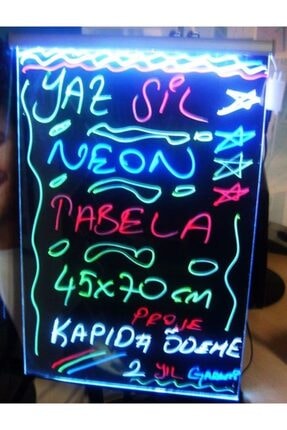 YAZ SİL
NEON
TABELA
45x70 cm
PROJE
KAPIDA ÖDEME
2 YIL